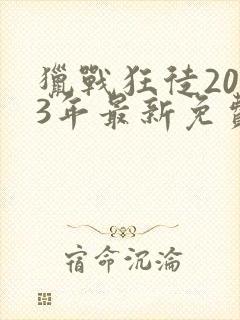 獵戰狂徒20
3年最新免費
宿命沉淪